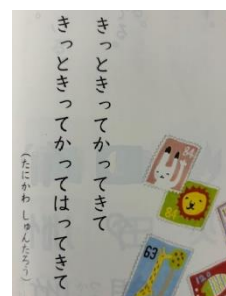 きっときってかってきて
きっときってかってはってきて
(たにかわ しゅんたろう)
84
84
63